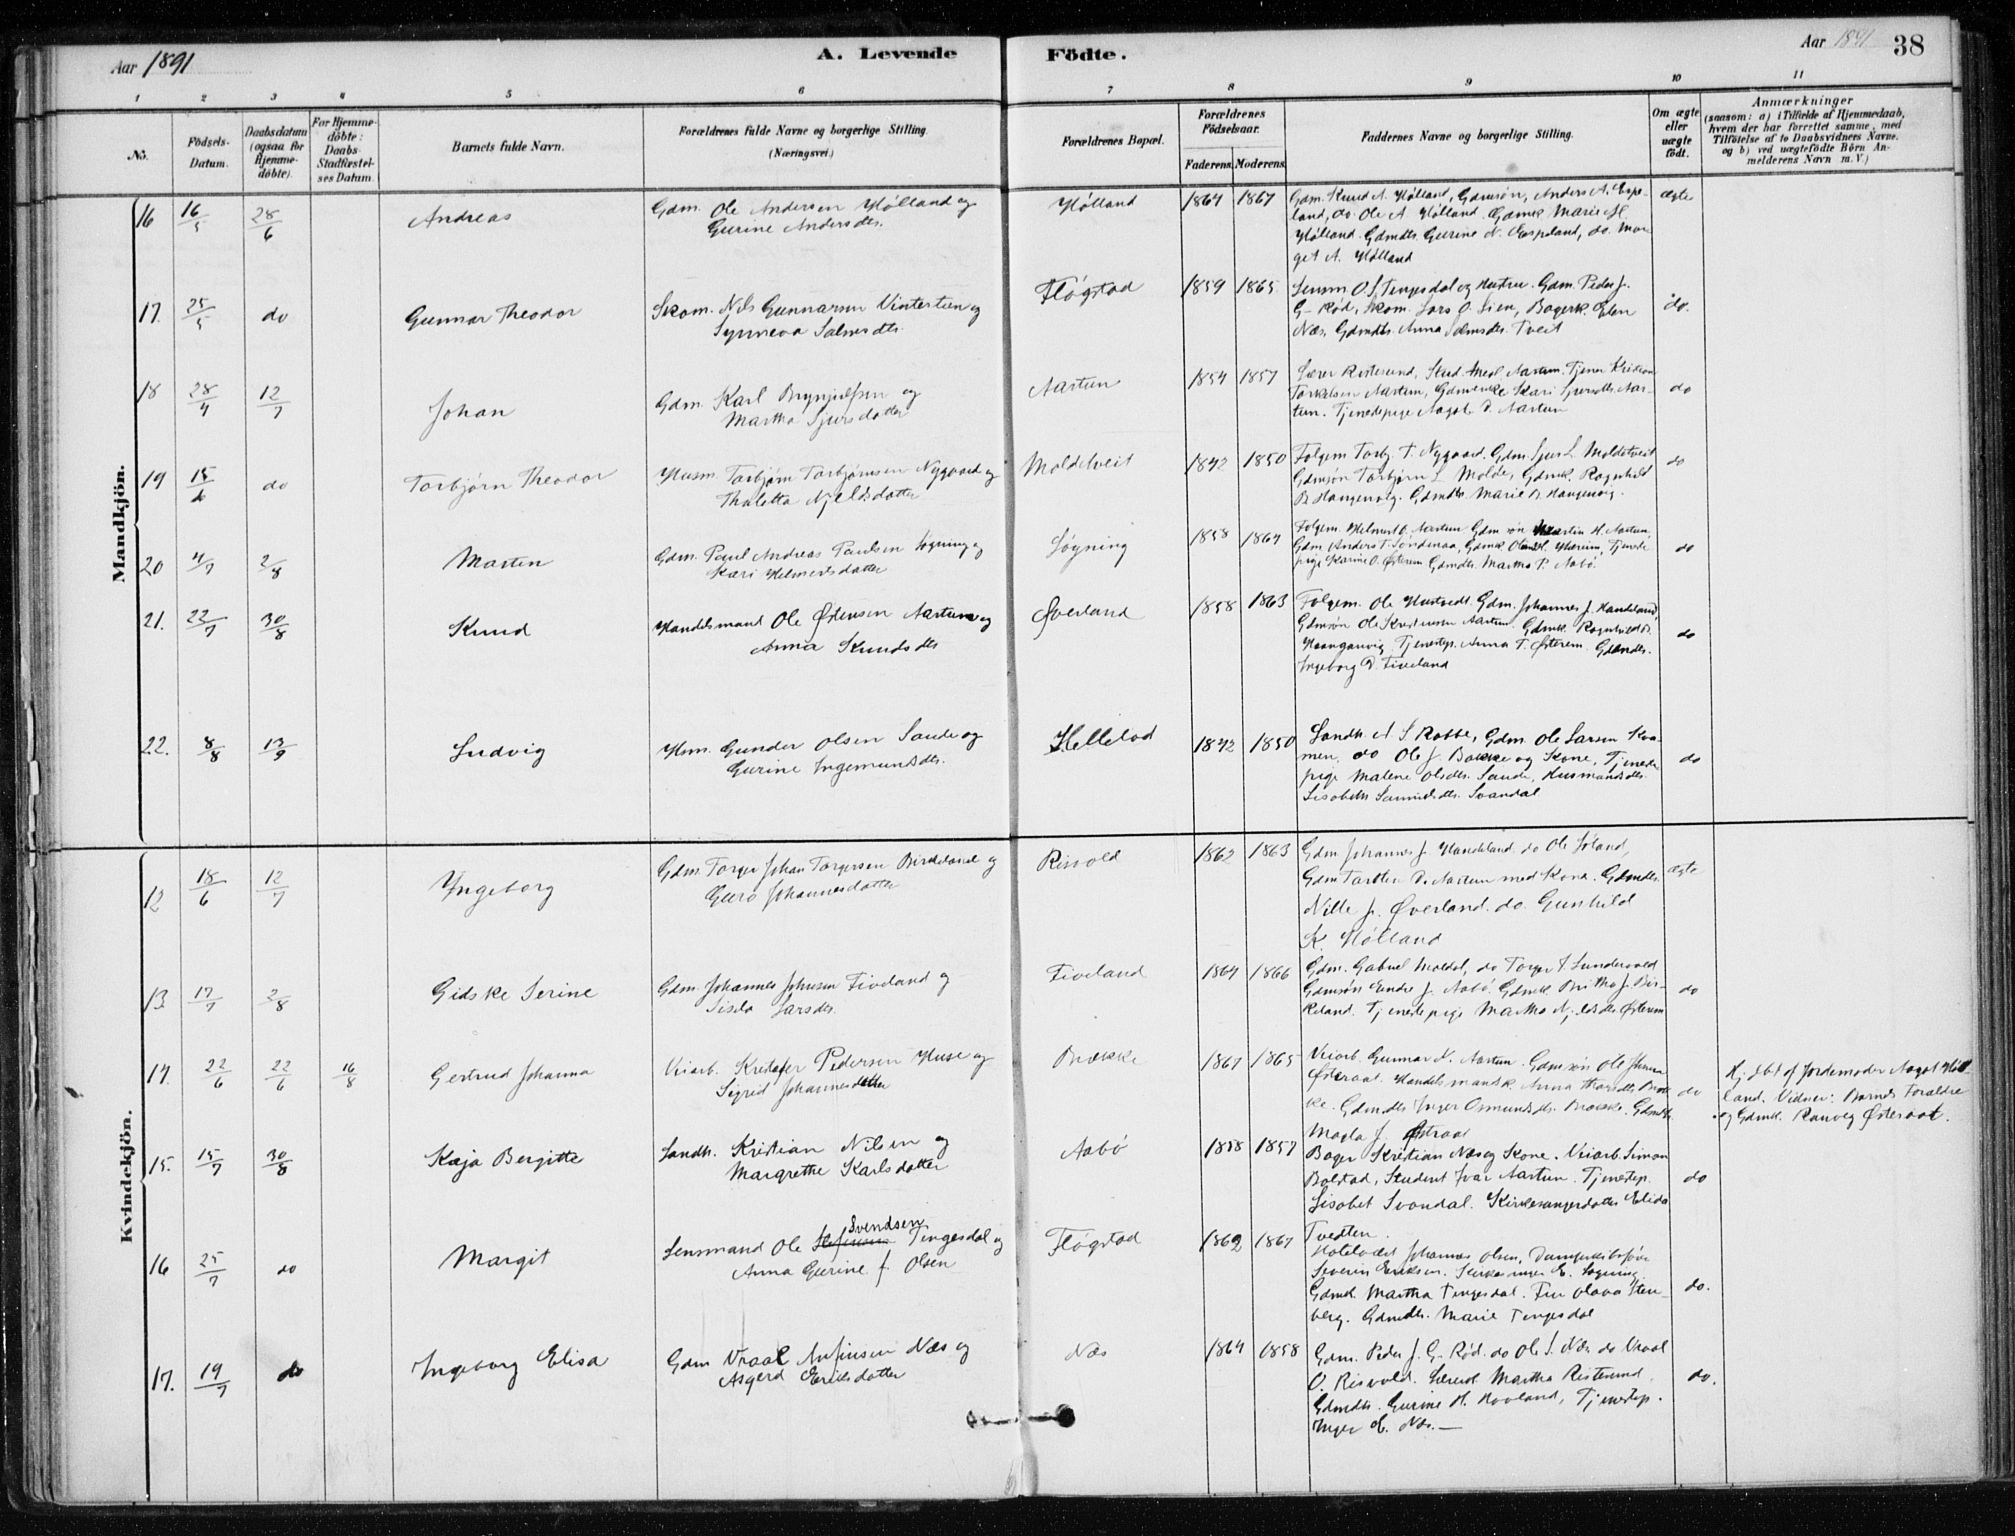 Aar 1891
A. Levende Födte.
Aar 1891
38
1 2 3 4 5 6 7 8 9 10 11
No.
Födsels-Datum.
Daabsdatum (ogsaa for Hjemmedöbte).
For Hjemmedöbte: Daabs-Stadfæstelses Datum.
Barnets fulde Navn.
Forældrenes fulde Navne og borgerlige Stilling. (Næringsvei.)
Forældrenes Bopæl.
Forældrenes Födselsaar.
Faderens. Moderens.
Faddernes Navne og borgerlige Stilling.
Om ægte eller uægte födt.
Anmærkninger
(saasom: a) i Tilfælde af Hjemmedaab, hvem der har forrettet samme, med Tilföielse af to Daabsvidners Navne. og b) ved uægtefödte Börn Anmelderens Navn m. V.)
Mandkjön.
16 16/5 28/6 Andreas
Gdm. Ole Andersen Hølland og
Gurine Andersdtr.
Hølland 1864 1867
Gdm. Knud A. Hølland, Gdmsøn, Anders A. Espe-
land, do. Ole A. Hølland. Gdmk. Marie H.
Hølland. Gdmdtr. Gurine N. Espeland, do. Mar
get A. Hølland
ægte
17. 25/5 do Gunnar Theodor
Skom. Nils Gunnarsen Vintertun og
Synneva Salmsdtr.
Fløgstad 1859 1865
Lensm. O. S. Tengesdal og Hustru. Gdm. Peder J.
G- Rød, Skom. Lars O. Lien, Bagerk. Elen
Næs, Gdmdtr. Anna Salmsdtr. Tveit
do.
18 28/4 12/7 Johan
Gdm. Karl Brynjulfsen og
Martha Sjursdatter
Aartun 1854 1857
Lærer Risterund, Stud. Med. Aartun. Tjener Kristian
Torkelsen Aartun, Gdmenke Kari Sjursdtr. Aar-
tun. Tjenestepige Aagot D. Aartun
do
19 15/6 do Torbjørn Theodor
Husm. Torbjørn Torbjørnsen Nygaard og
Thaletta Njeldsdatter
Moldetveit 1842 1850
Folgem. Torbj. T. Nygaard. Gdm. Sjur L. Moldetveit
Gdmsøn Torbjørn L. Molde, Gdmk. Ragnhild
B. Haugenvig. Gdmdtr. Marie B. Haugenvig.
do
20 4/7 2/8 Marten
Gdm. Paul Andreas Paulsen Søgning og
Kari Helmersdatter
Søgning 1858 1864
Folgem. Helmer O. Aartun Gdmsøn Martin H. Aartun,
Gdm. Anders T. Søndenaa, Gdmk. H. Tjeneste
pige Karine O. Østerem Gdmdtr. Martha P. Aabø
do
21. 22/7 30/8 Knud
Handelsmand Ole Østensen Aartun og
Anna Knudsdtr
Øverland 1858 1863
Folgem. Ole Hustvedt. Gdm. Johannes J. Handeland,
Gdmsøn Ole Kristensen Aartun. Gdmk. Ragnhild B.
Haugenvig Tjenestep. Anna T. Østerem. Gdmdtr.
Ingeborg D. Fiveland
do
22. 8/8 13/9 Ludvig
Hsm. Gunder Olsen Sande og
Gurine Ingemundsdtr.
Hellelad 1842 1850
Landh. A S Rabbe, Gdm. Ole Larsen Kva-
men, do Ole J. Bakke og Kone, Tjeneste
pige Malene Olsdtr. Sande, Husmandsdtr.
Lisabeth Samuelsdtr. Svandal
do
Kvindekjön.
12 18/6 12/7 Ingeborg
Gdm. Torger Johan Torgersen Birkeland og
Guro Johannesdatter
Risvold 1862 1863
Gdm. Johannes J. Handeland. do Ole Føland,
Gdm. D. Aartun med Kone. Gdmdtr.
Nille J. Øverland. do. Gunhild
K. Hølland
ægte
13 17/7 2/8 Gidske Serine
Gdm. Johannes Johnsen Fiveland og
Sisila Larsdtr.
Fiveland 1864 1866
Gdm. Gabriel Moldal, do Torger T. Sundevold
Gdmsøn Endre J. Aabø. Gdmk. Britha J. Bir-
keland. Tjenestepige Martha Njeldsdtr. Østerem
do
14. 22/6 22/6 16/8 Gertrud Johanna
Veiarb. Kristofer Pedersen Huse og
Sigrid Johannesdatter
Brække 1867 1865
Veiarb. Gunnar N. Aartun. Gdmsøn Ole
Østeraat. Handelsmandsk. Anna Bræk
ke. Gdmdtr. Inger Osmundsdtr. Brække. Gdmdtr.
Magla J. Østraat
do
Hj. dbt af Jordemoder Aagot Høl
land. Vidner: Barnets Forældre
og Gdmk. Ranveg Østeraat.
15. 15/7 30/8 Kaja Bergitte
Landh. Kristian Nilsen og
Margrethe Karlsdatter
Aabø 1858 1857
Bager Kristian Næs og Kone. Veiarb. Simon
Bolstad, Student Ivar Aartun. Tjenestep.
Lisabet Svandal. Kirkesangerdatter Elida
Tvedten.
do
16 25/7 do Margit
Lensmand Ole Svendsen Tengesdal og
Anna Gurine J. Olsen
Fløgstad 1862 1867
Hotelvært Johannes Olsen, Dampskibsfører
Severin Eriksen. Kirkesanger E. Søgning
Gdmk. Martha Tengesdal. Fru Olava Sten-
berg. Gdmdtr. Marie Tengesdal
do.
17. 19/7 do Ingeborg Elisa
Gdm Vraal Anfinsen Næs og
Asgerd Eriksdatter
Næs 1864 1858
Gdm. Peder J. G- Rød. do Ole S. Næs do Vraal
O. Risvold. Lærerk. Martha Risterund.
Gdmdtr. Gurine H. Hovland, Tjenestep.
Inger E. Næs. —
do.